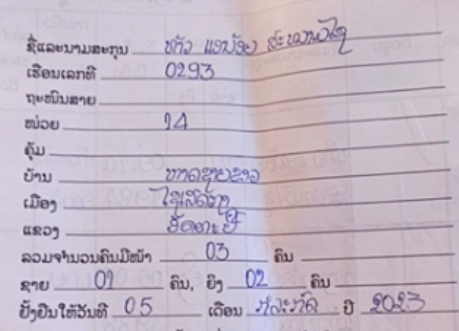 ຊື່ແລະນາມສະກຸນ ທ້າວ
ເຮືອນເລກທີ 0293
ຖະໜົນສາຍ
ໜ່ວຍ 14
ຄຸ້ມ
ບ້ານ ຫາດຊາຍຂາວ
ເມືອງ ໄຊເສດຖາ
ແຂວງ ອັດຕະປື
ລວມຈຳນວນຄົນມີໜ້າ 03 ຄົນ
ຊາຍ 01 ຄົນ, ຍິງ 02 ຄົນ
ຢັ້ງຢືນໃຫ້ວັນທີ 05 ເດືອນ ກໍລະກົດ ປີ 2023